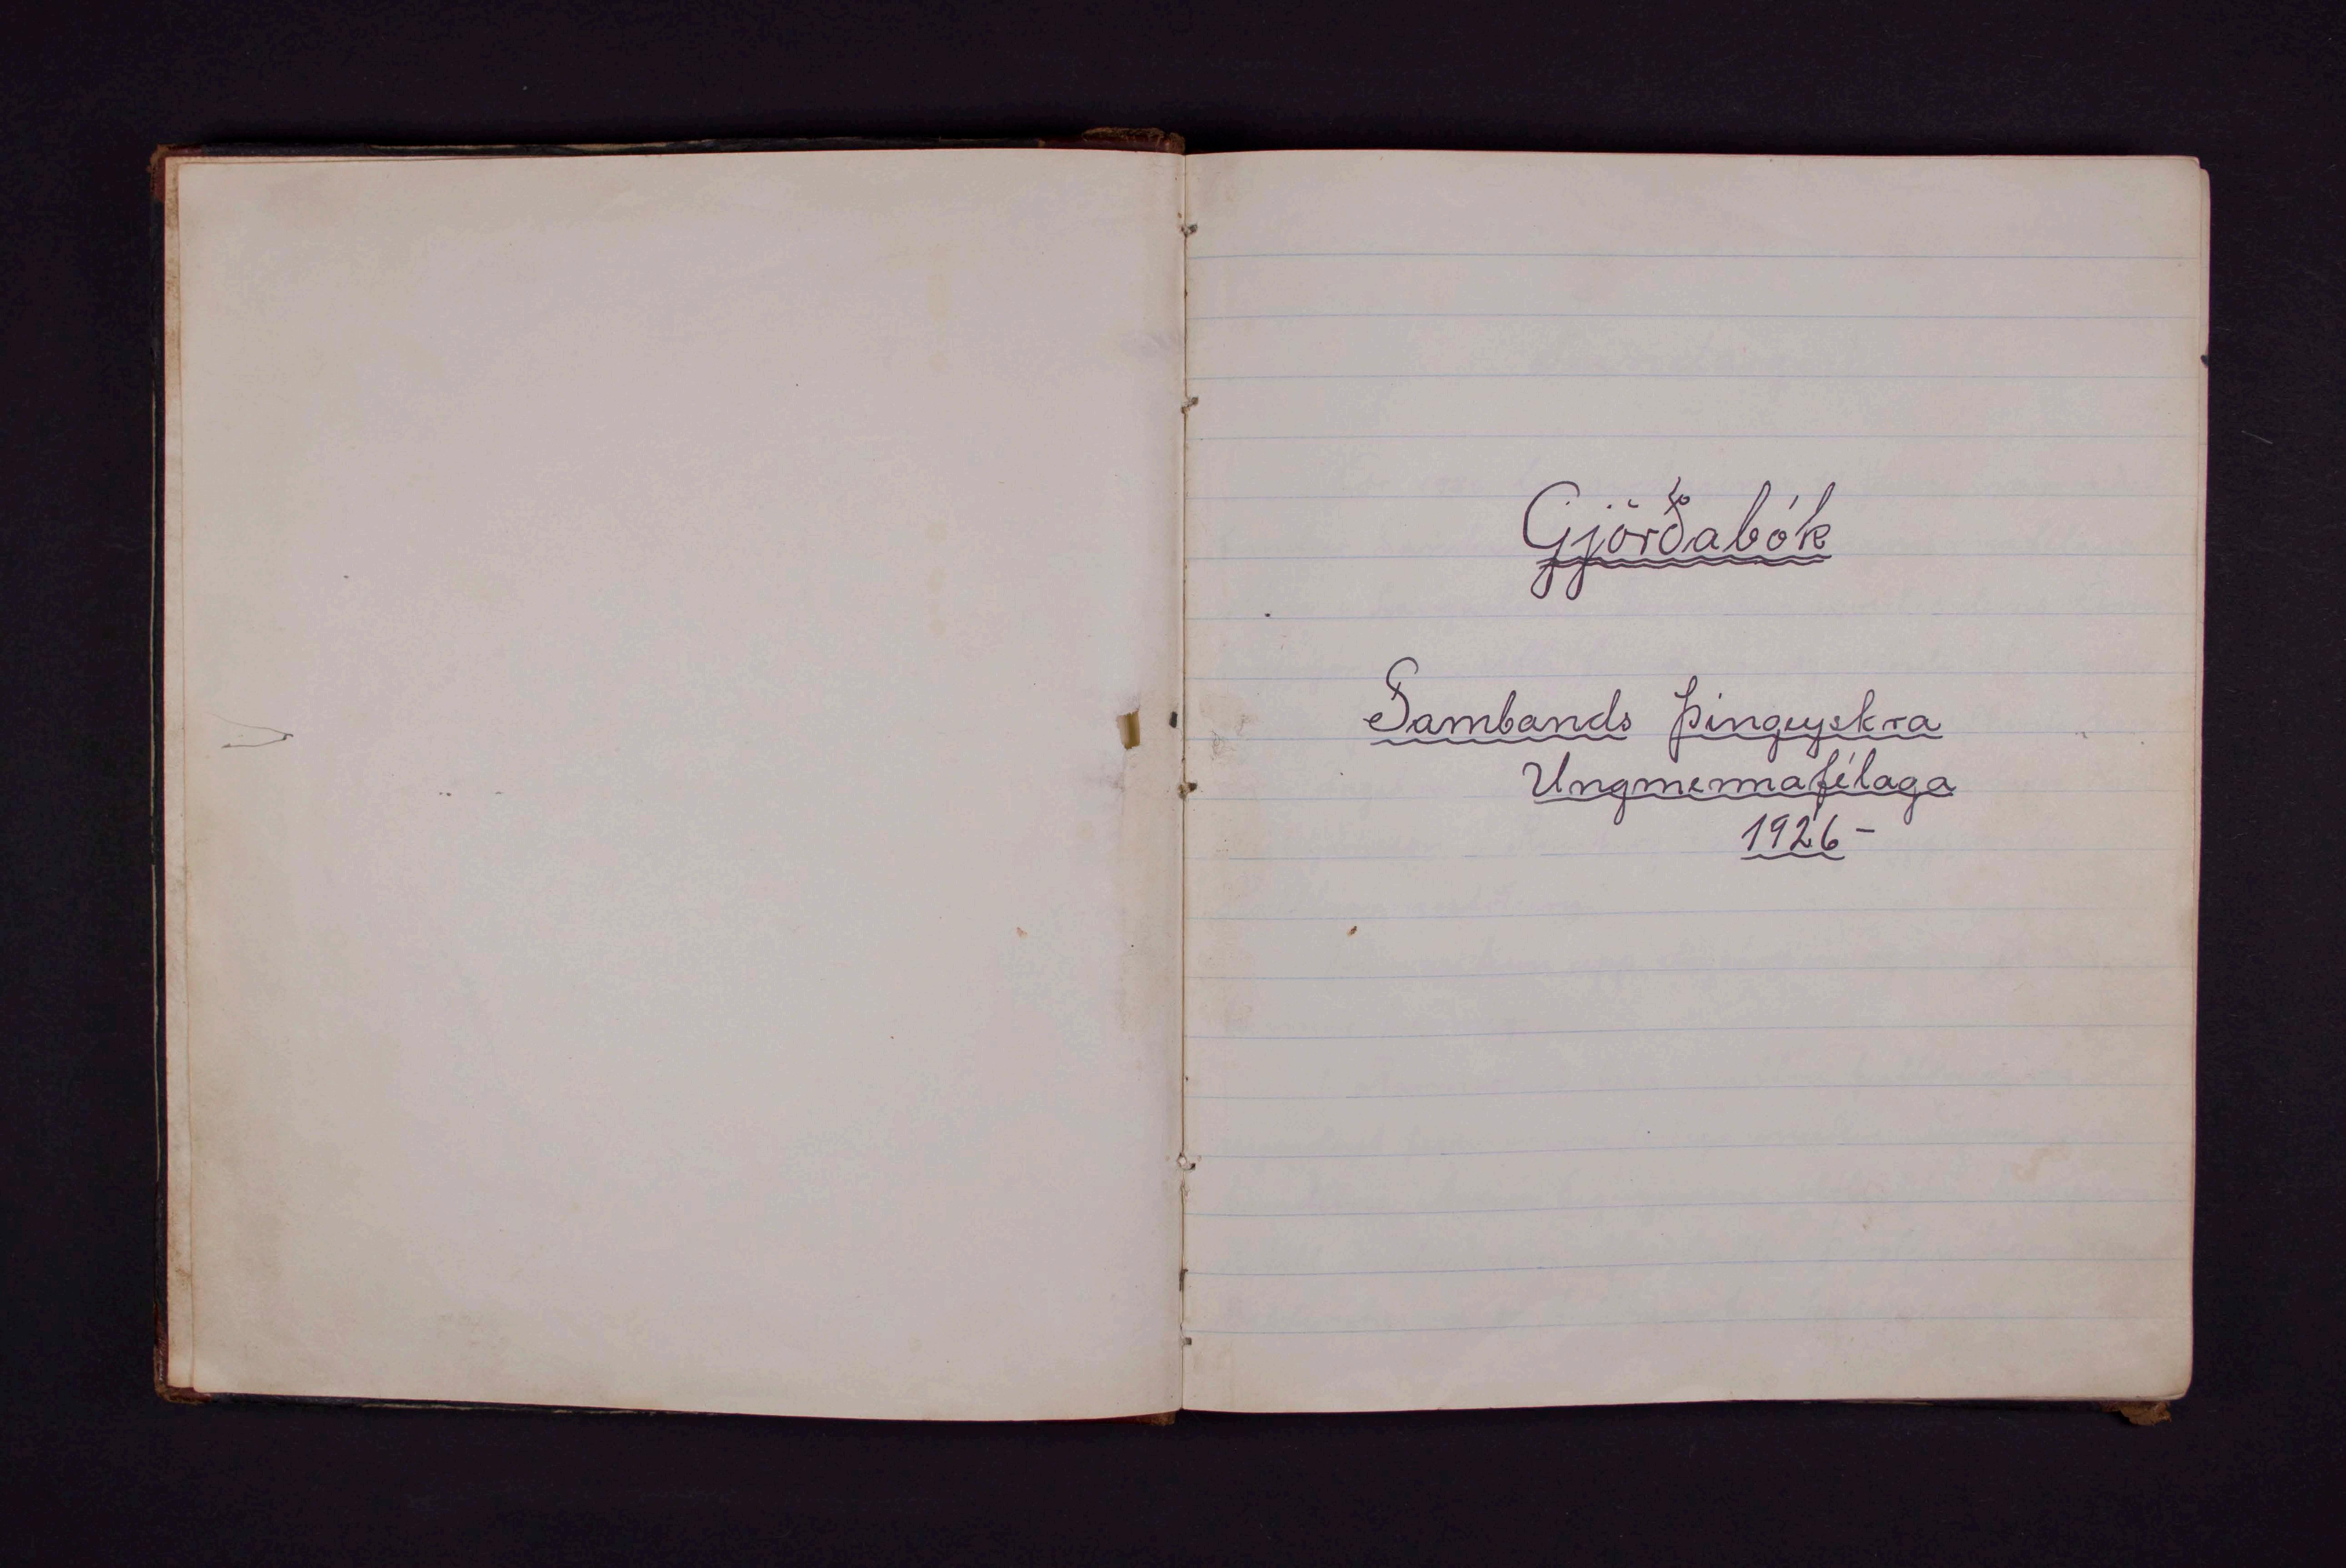 Gjörðabók
Sambands Þingeyskra
Ungmennafélaga
1926-